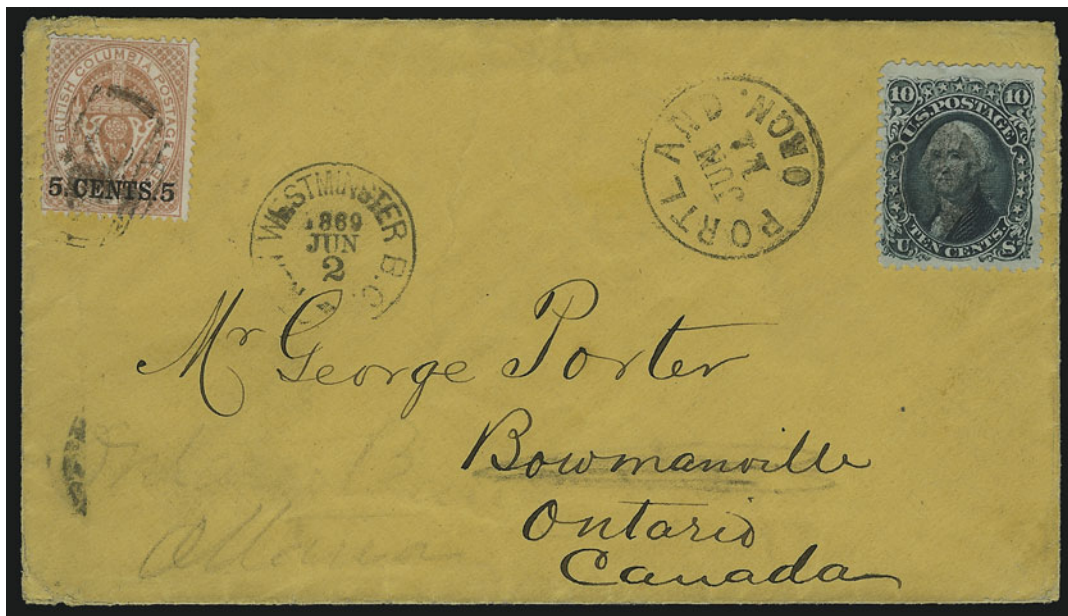 BRITISH COLUMBIA POSTAGE
5.CENTS.5
WESTMINSTER B.C.
1869
JUN
2
PORTLAND OGN.
JUN
10 10
U.S. POSTAGE
TEN CENTS.
U. S.
Mr George Porter
Bowmanville
Ontario
Canada
Ottawa